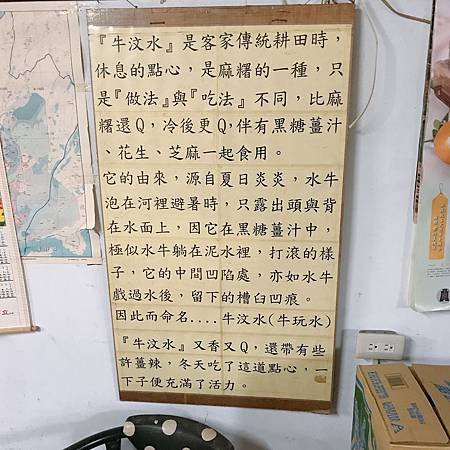 『牛汶水』是客家傳統耕田時,
休息的點心，是麻糬的一種，只
是『做法』與『吃法』不同，比麻
糬還Q，冷後更Q，伴有黑糖薑汁
、花生、芝麻一起食用。
它的由來，源自夏日炎炎，水牛
泡在河裡避暑時，只露出頭與背
在水面上，因它在黑糖薑汁中，
極似水牛躺在泥水裡，打滾的樣
子，它的中間凹陷處，亦如水牛
戲過水後，留下的槽臼凹痕。
因此而命名....牛汶水(牛玩水)
『牛汶水』又香又Q，還帶有些
許薑辣，冬天吃了這道點心，一
下子便充滿了活力。